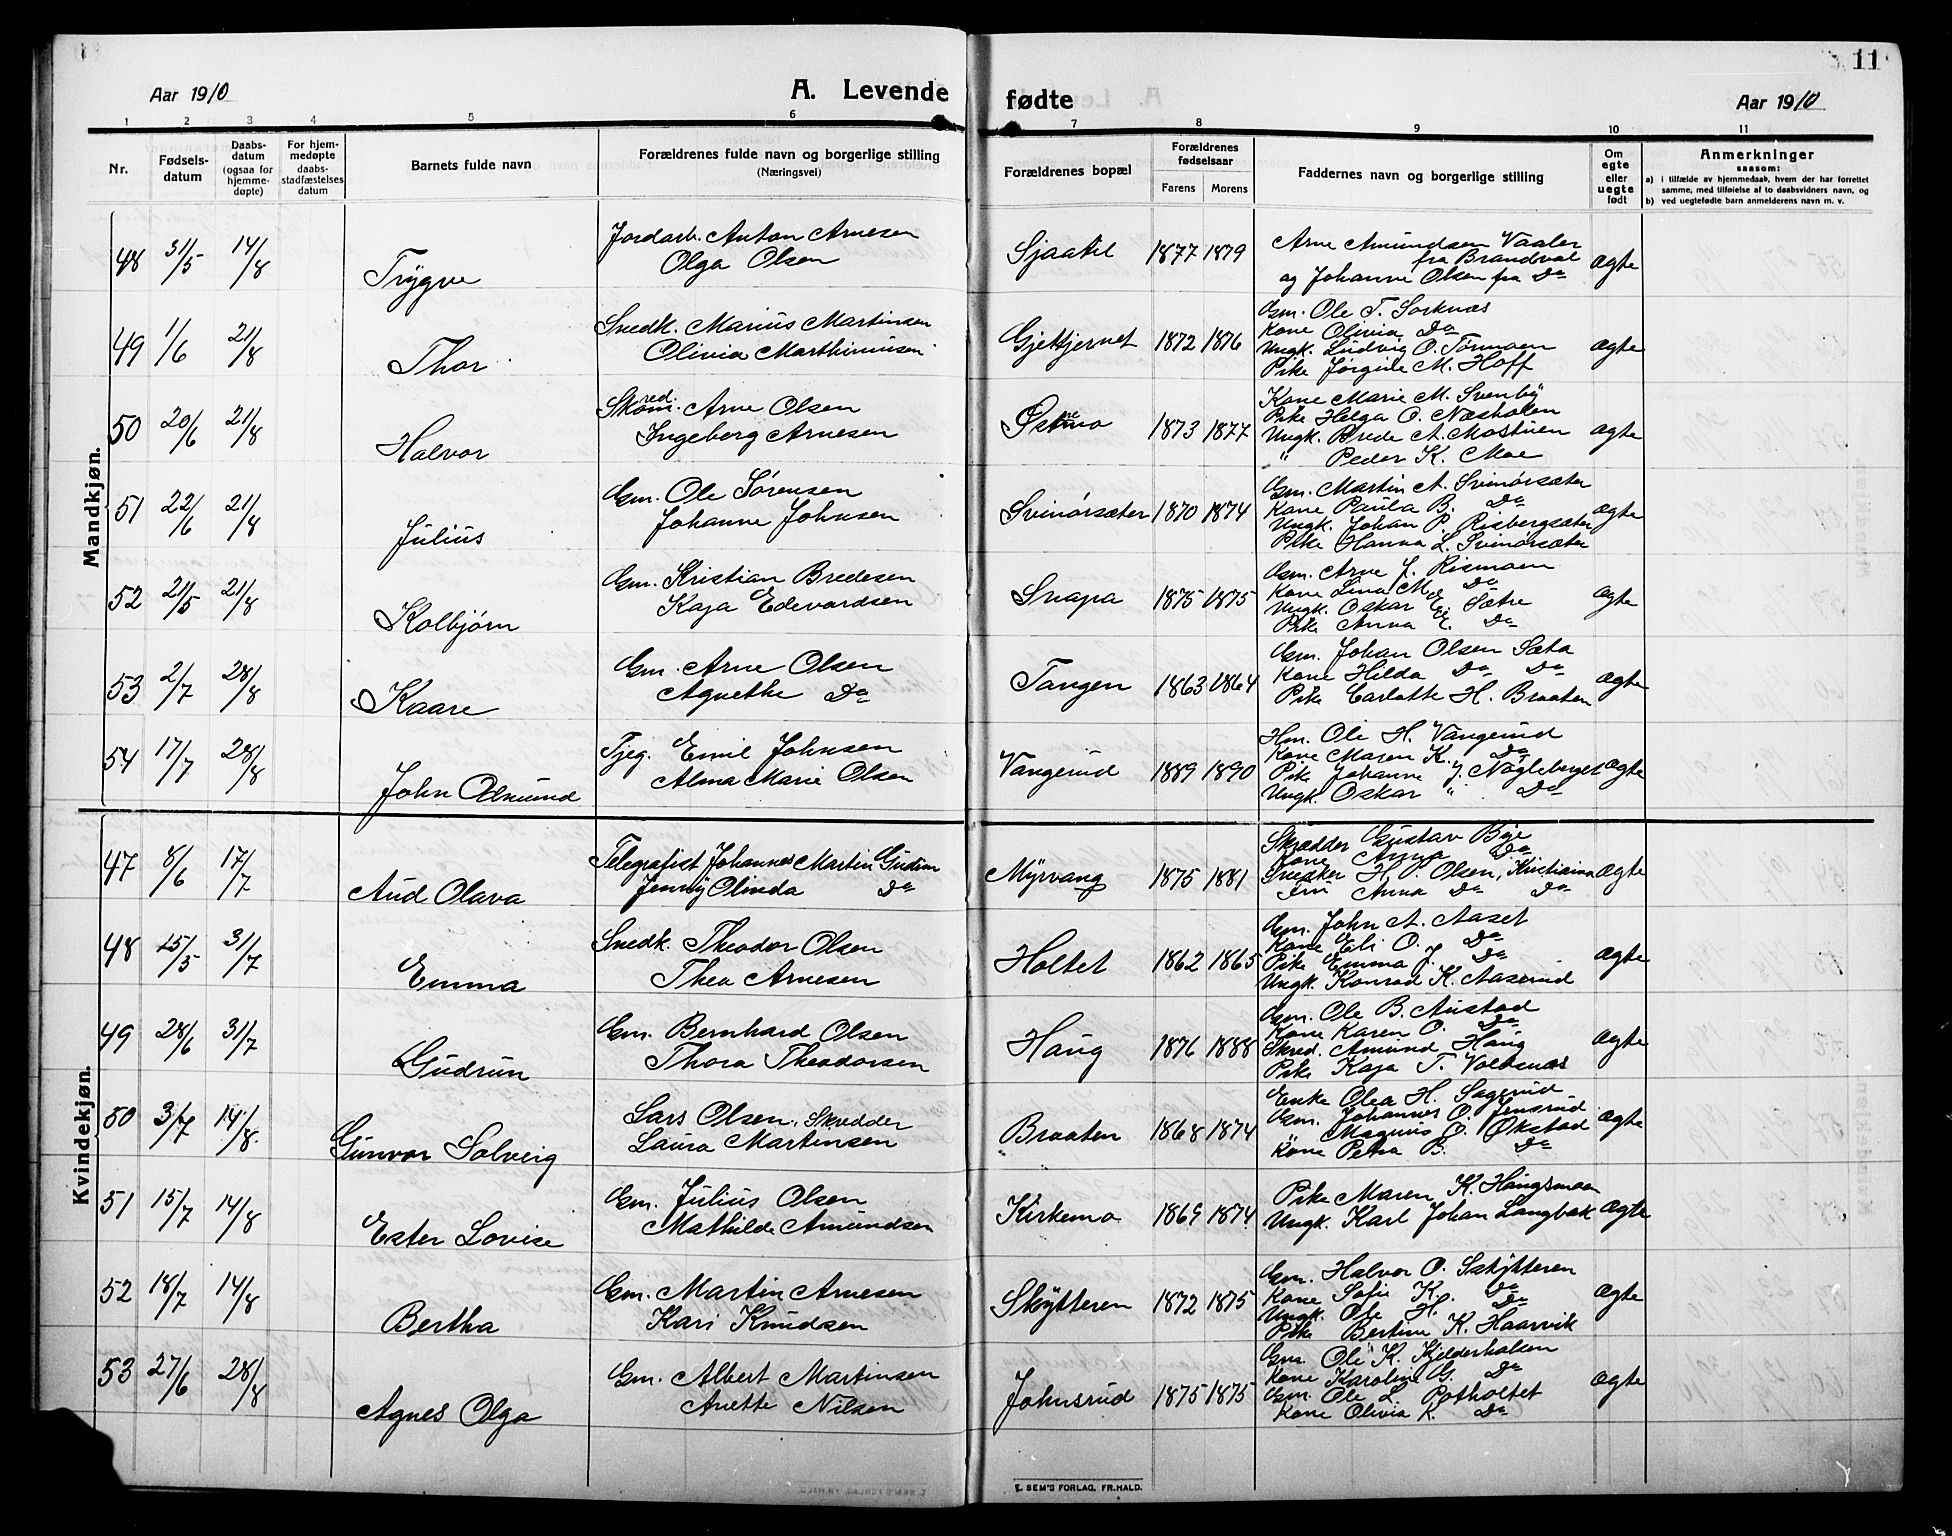 11
Aar 1910
A. Levende
fødte
Aar 1910
1 2 3 4 5 6 7 8 9 10 11
Nr.
Fødsels-
datum
Daabs-
datum
(ogsaa for
hjemme-
døpte)
For hjem-
medøpte
daabs-
stadfæstelses
datum
Barnets fulde navn
Forældrenes fulde navn og borgerlige stilling
(Næringsvei)
Forældrenes bopæl
Forældrenes
fødselsaar
Farens Morens
Faddernes navn og borgerlige stilling
Om
egte
eller
uegte
født
Anmerkninger
saasom:
a) i tilfælde av hjemmedaab, hvem der har forrettet
samme, med tilføielse af to daabsvidners navn, og
b) ved uegtefødte barn anmelderens navn m. v.
Mandkjøn.
48 31/5 14/8 Trygve
Jordarb. Anton Arnesen
Olga Olsen
Sjaatil 1877 1879
Arne Amundsen Vaaler
fra Brandval
og Johanne Olsen fra Do
ægte
49 1/6 21/8 Thor
Snedk. Marius Martinsen
Olivia Marthinusen
Gjetjernet 1872 1876
Gm. Ole T. Sorknæs
Kone Olivia Do
Ungk. Ludvig O. Tørmoen
Pike Jørgine M. Hoff
ægte
50 20/6 21/8 Halvor
Arne Olsen
Ingeborg Arnesen
1873 1877
Kone Marie M. Svenby
Pike Helga O. Næsholen
Ungk. Brede A. Mostuen
" Peder K. Moe
ægte
51 22/6 21/8 Julius
Gm. Ole Sørensen
Johanne Johnsen
Svinørsæter 1870 1874
Gm. Martin A. Svinørsæter
Kone Paula B. Do
Ungk. Johan P. Risbergsæter
Pike Hanna L. Svinørsæter
ægte
52 21/5 21/8 Kolbjørn
Gm. Kristian Bredesen
Kaja Edevardsen
Snapa 1875 1875
Gm. Arne J. Rismoen
Kone Lina M. Do
Ungk. Oskar E. Sætre
Pike Anna E. Do
ægte
53 2/7 28/8 Kaare
Gm. Arne Olsen
Agnethe Do
Tangen 1863 1864
Gm. Johan Olsen Sæta
Kone Hilda Do Do
Pike Carlotte H. Braaten
ægte
54 17/7 28/8 John Osmund
Tjeg. Emil Johnsen
Alma Marie Olsen
Vangerud 1889 1890
Hm. Ole H. Vangerud
Kone Maren K. Do
Pike Johanne J. Nögleberget
Ungk. Oskar " Do
ægte
Kvindekjøn.
47 8/6 17/7 Aud Olava
Telegrafist Johannes Martin Gudim
Jenny Olinda Do
Myrvang 1875 1881
Skrædder Gustav Bye
Kone Anna Do
Snedker H. P. Olsen, Kristiania
Fru Anna Do Do
ægte
48 15/5 31/7 Emma
Snedk. Theodor Olsen
Thea Arnesen
Holtet 1862 1865
Gm. John A. Aaset
Kone Eli O. Do
Pike Emma J. Do
Ungk. Konrad K. Aaserud
ægte
49 28/6 31/7 Gudrun
Gm. Bernhard Olsen
Thora Theodorsen
Haug 1876 1888
Gm. Ole B. Austad
Kone Karen O. Do
Skred. Amund Haug
Pike Kaja T. Voldsnæs
ægte
50 3/7 14/8 Gunvor Solveig
Lars Olsen, Skredder
Laura Martinsen
Braaten 1868 1874
Enke Olea H. Sagerud
Gm. Johannes O. Jensrud
Magnus O. Økstad
Kone Petra B. Do
ægte
51 15/7 14/8 Ester Lovise
Gm. Julius Olsen
Mathilde Amundsen
Kirkemo 1869 1874
Pike Maren K. Haugsmoen
Ungk. Karl Johan Langbak
ægte
52 18/7 14/8 Bertha
Gm. Martin Arnesen
Kari Knudsen
Skytteren 1872 1875
Gm. Halvor O. Skytteren
Kone Sofie K. Do
Ungk. Ole H. Do
Pike Bertine K. Haarvik
ægte
53 27/6 28/8 Agnes Olga
Gm. Albert Martinsen
Anette Nilsen
Johnsrud 1875 1875
Gm. Ole K. Kjelderholsen
Kone Karoline G. Do
Gm. Ole L. Potholtet
Kone Olivia K. Do
ægte
E. SEM'S FORLAG, FR.HALD.